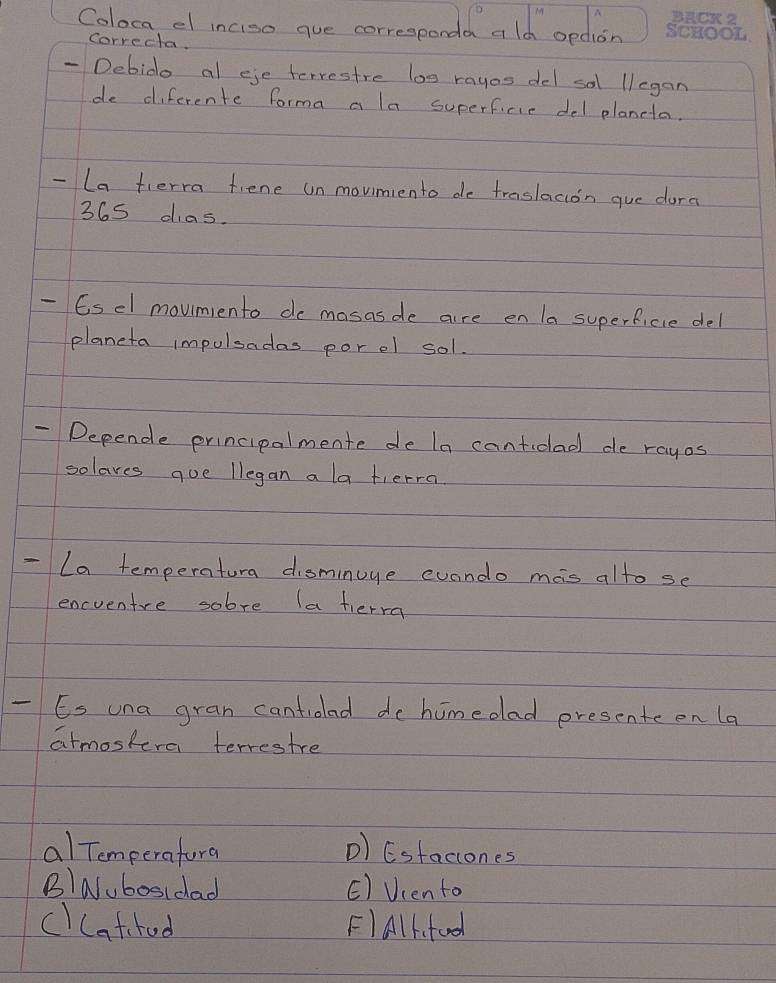 D M A
BACK 2
SCHOOL
Coloca el inciso que corresponda a la opción
correcta.
- Debido al eje terrestre los rayos del sol llegan
de diferente forma a la superficie del planeta.
- La tierra tiene un movimiento de traslación que dura
365 dias.
- Es el movimiento de masas de aire en la superficie del
planeta impulsadas por el sol.
- Depende principalmente de la cantidad de rayos
solares que llegan a la tierra
- La temperatura disminuye cuando más alto se
encuentre sobre la tierra
- Es una gran cantidad de húmedad presente en la
átmosfera terrestre
a) Temperatura D) Estaciones
B) Nubosidad E) Viento
C) Latitud F) Altitud